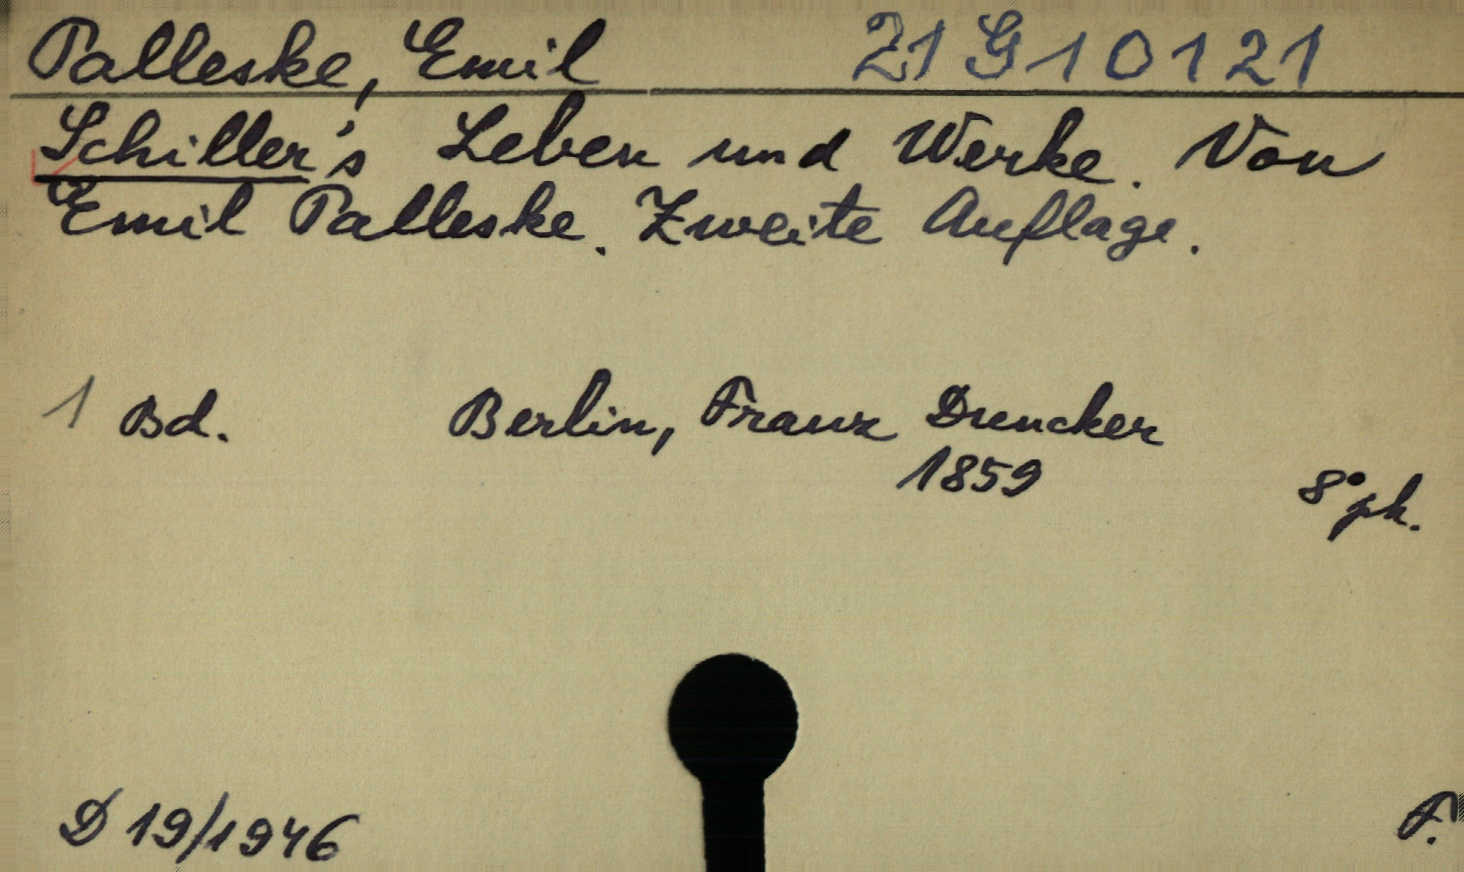 Palleske, Emil 21 G 10121
Schiller's Leben und Werke. Von
Emil Palleske. Zweite Auflage.
1 Bd. Berlin, Franz Duncker
1859
8° pk.
D 19/1946
F.